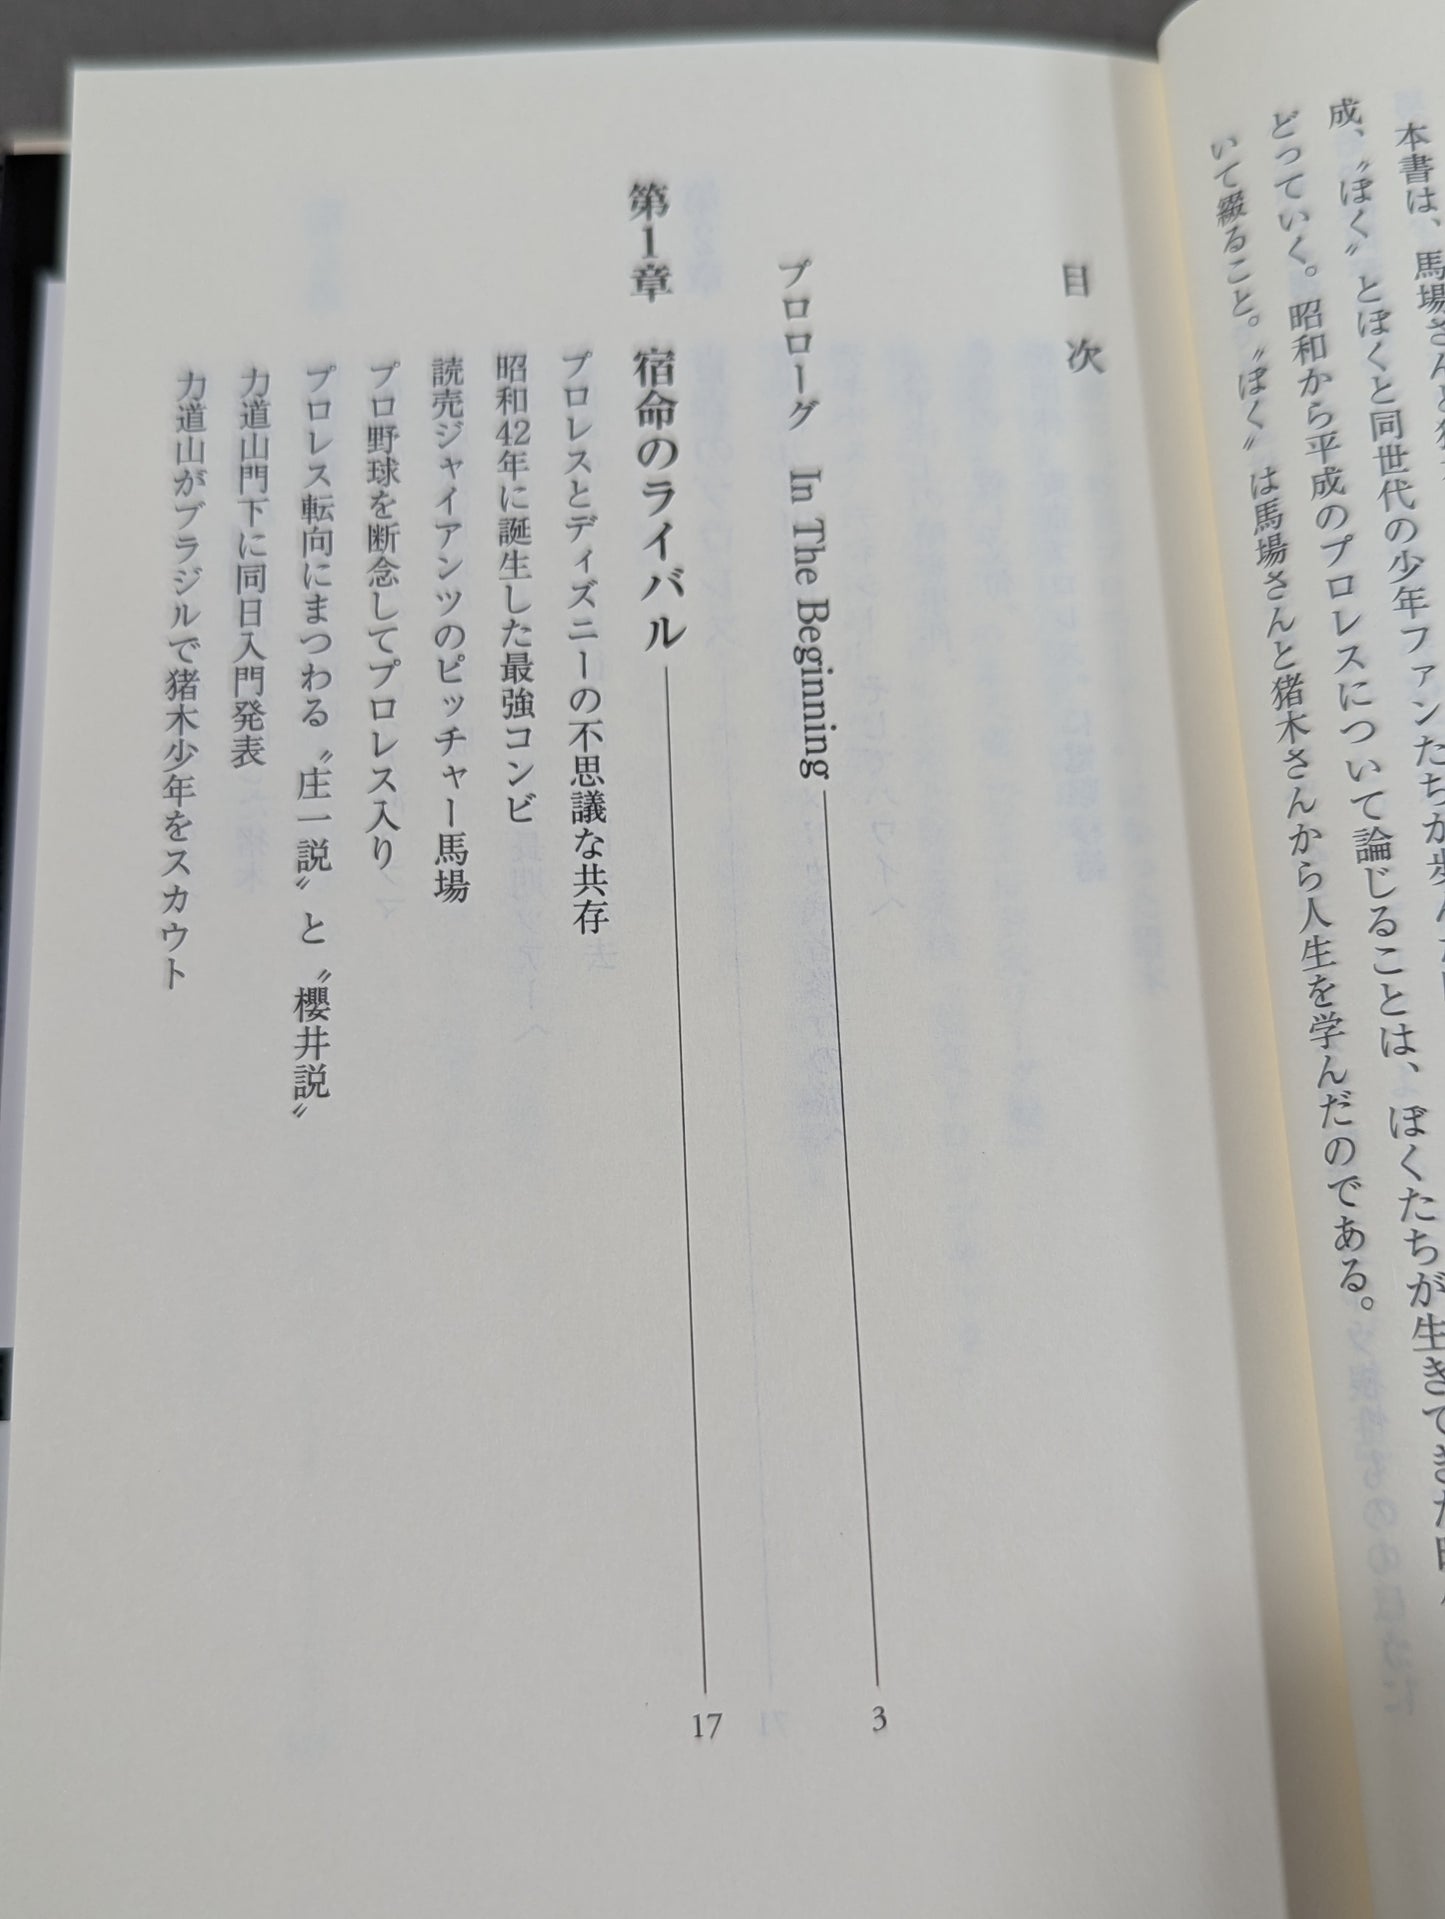 本書は、馬場さんと猪
成、〝ぼく〟とぼくと同世代の少年ファンたちが歩んだ
どっていく。昭和から平成のプロレスについて論じることは、ぼくたちが生きてきた時
いて綴ること。〝ぼく〟は馬場さんと猪木さんから人生を学んだのである。
目次
プロローグ In The Beginning 3
第1章 宿命のライバル 17
プロレスとディズニーの不思議な共存
昭和42年に誕生した最強コンビ
読売ジャイアンツのピッチャー馬場
プロ野球を断念してプロレス入り
プロレス転向にまつわる〝庄一説〟と〝櫻井説〟
力道山門下に同日入門発表
力道山がブラジルで猪木少年をスカウト